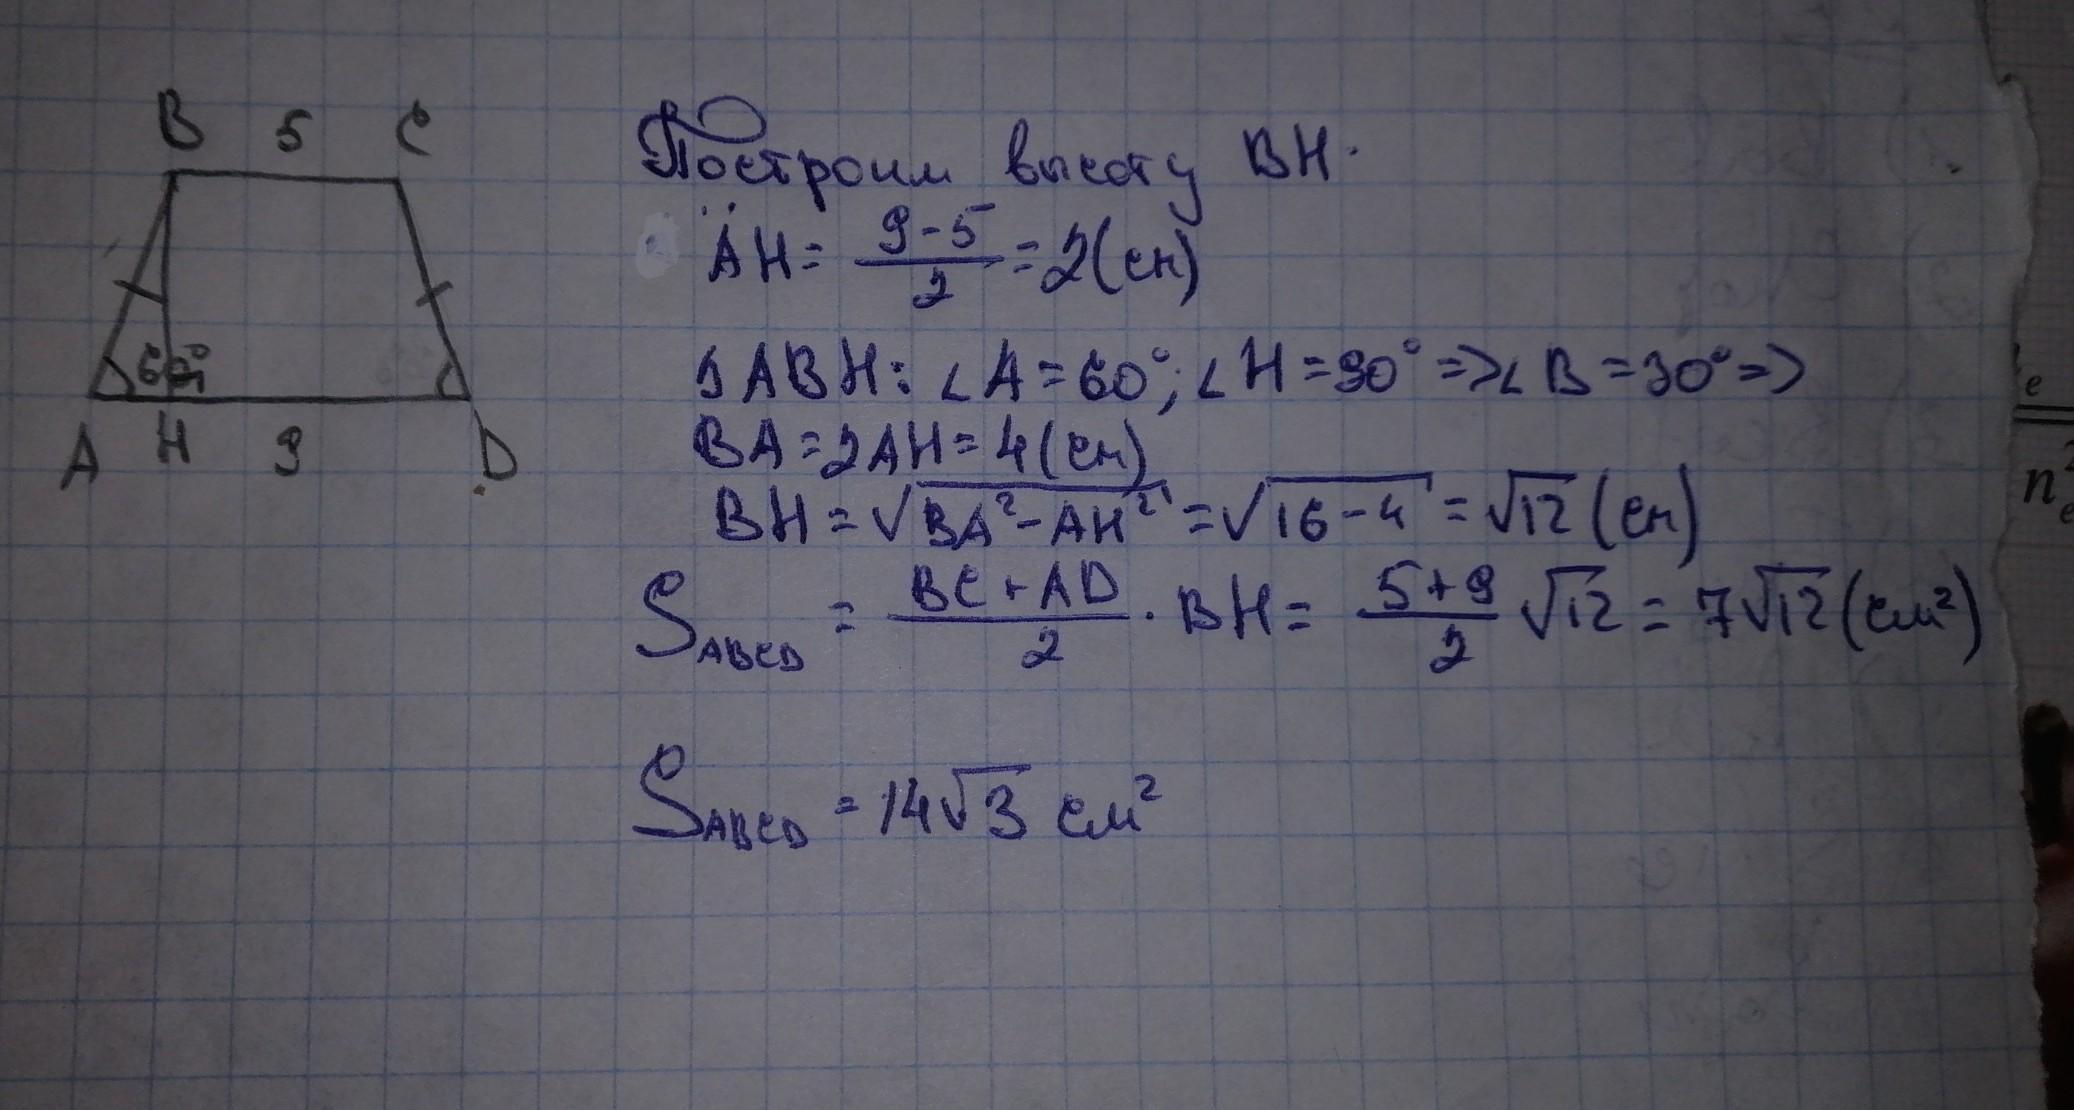 B 5 C
60°
A H 9 D
Построим высоту BH.
AH = (9-5)/2 = 2(см)
ΔABH: ∠A = 60°; ∠H = 90° => ∠B = 30° =>
BA = 2AH = 4(см)
BH = √(BA² - AH²) = √(16-4) = √12 (см)
S_ABCD = (BC + AD)/2 · BH = (5+9)/2 √12 = 7√12 (см²)
S_ABCD = 14√3 см²
e
n²e